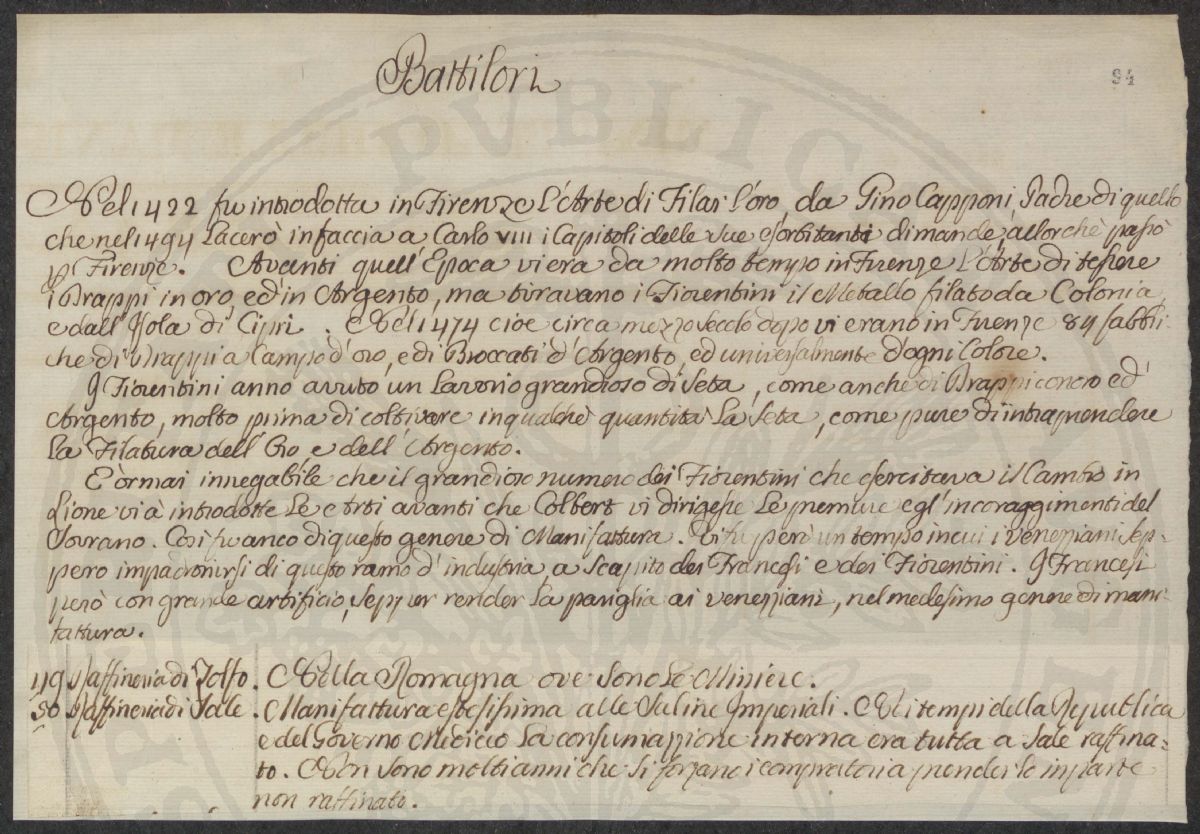 Battilori
94
Nel 1422 fu introdotta in Firenze L'Arte di Filar l'oro, da Gino Capponi, Padre di quello
che nel 1494 Lacerò in faccia a Carlo VIII i Capitoli delle sue esorbitanti dimande, allorchè passò
p Firenze. Avanti quell'Epoca vi era da molto tempo in Firenze L'Arte di tessere
i Drappi in oro, ed in Argento, ma tiravano i Fiorentini il Metallo filato da Colonia,
e dall'Isola di Cipri. Nel 1474 cioè circa mezzo secolo dopo vi erano in Firenze 84 fabbri=
che di Drappi a Campo d'oro, e di Broccati d'Argento, ed universalmente d'ogni Colore.
I Fiorentini anno avuto un Lavorio grandioso di Seta, come anche di Drappi con oro ed
Argento, molto prima di coltivare in qualche quantità La Seta, come pure di intraprendere
La Filatura dell'Oro, e dell'Argento.
È ormai innegabile che il grandioso numero dei Fiorentini che esercitava il Cambio in
Lione vi à introdotte Le Arti avanti che Colbert vi dirigesse Le premure e gl'incoraggimenti del
Sovrano. Così fu anco di questo genere di Manifattura. Vi fu però un tempo in cui i Veneziani sep=
pero impadronirsi di questo ramo d'industria, a Scapito dei Francesi e dei Fiorentini. I Francesi
però con grande artificio, Sepper render La pariglia ai Veneziani, nel medesimo genere di mani
fattura.
119 Raffineria di Zolfo. Nella Romagna ove sono Le Miniere.
90 Raffineria di Sale. Manifattura estesissima alle Saline Imperiali. Nei tempi della Republica
e del Governo Mediceo La consumazzione interna era tutta a Sale raffina=
to. Non sono molti anni che si forzano i compratori a prenderlo in parte
non raffinato.
PVBLICA